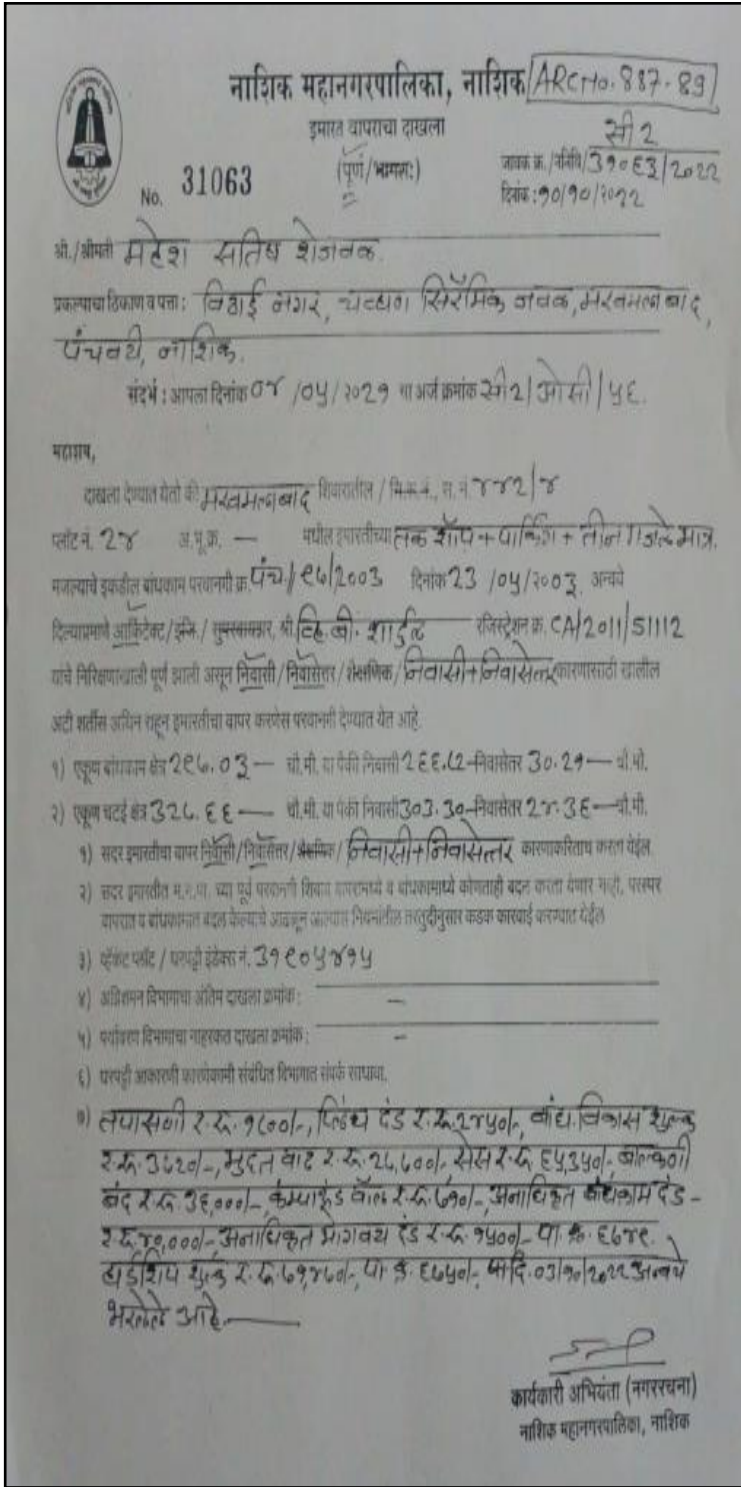 नाशिक महानगरपालिका, नाशिक ARC No. 887-89
इमारत वापराचा दाखला सी २
No. 31063 (पूर्ण/भागशः) जावक क्र./नरिवि/३१०६३/२०२२
दिनांक : १०/१०/२०२२
श्री./श्रीमती महेश सतिष शेजवळ.
प्रकल्पाचा ठिकाण व पत्ता : विठाई नगर, चव्हाण सिरॅमिक जवळ, मखमलाबाद,
पंचवटी, नाशिक.
संदर्भ : आपला दिनांक ०४/०५/२०२१ चा अर्ज क्रमांक सी२/ओसी/५६.
महाशय,
दाखला देण्यात येतो की मखमलाबाद शिवारातील / सि.स.नं., स. नं. ४४२/४
प्लॉट नं. २४ अ.भू.क्र. — मधील इमारतीच्या तळ शॉप + पार्किंग + तीन मजले मात्र.
मजल्याचे इकडील बांधकाम परवानगी क्र. पंच/ /२००३ दिनांक २३/०५/२००३ अन्वये
दिल्याप्रमाणे आर्किटेक्ट/इंजि./ सुपरवायझर, श्री. व्हि. बी. शार्दुल रजिस्ट्रेशन क्र. CA/2011/51112
यांचे निरिक्षणाखाली पूर्ण झाली असून निवासी/निवासेतर/शैक्षणिक/निवासी+निवासेत्तर कारणासाठी खालील
अटी शर्तीस अधिन राहून इमारतीचा वापर करणेस परवानगी देण्यात येत आहे.
१) एकूण बांधकाम क्षेत्र २९७.०३ — चौ.मी. या पैकी निवासी २६६.८२ निवासेतर ३०.२१ — चौ.मी.
२) एकूण चटई क्षेत्र ३२७.६६ — चौ.मी. या पैकी निवासी ३०३.३० निवासेतर २४.३६ — चौ.मी.
१) सदर इमारतीचा वापर निवासी/निवासेतर/शैक्षणिक/ निवासी+निवासेत्तर कारणाकरिताच करता येईल.
२) सदर इमारतीत म.न.पा. च्या पूर्व परवानगी शिवाय वापरामध्ये व बांधकामाध्ये कोणताही बदल करता येणार नाही, परस्पर
वापरात व बांधकामात बदल केल्याचे आढळून आल्यास नियमांतील तरतुदीनुसार कडक कारवाई करण्यात येईल
३) व्हॅकंट प्लॉट / घरपट्टी इंडेक्स नं. ३१९०५४१५
४) अग्निशमन विभागाचा अंतिम दाखला क्रमांक : —
५) पर्यावरण विभागाचा नाहरकत दाखला क्रमांक : —
६) घरपट्टी आकारणी कारणेकामी संबंधित विभागात संपर्क साधावा.
७) तपासणी र.रू. १८००/-, प्लिंथ दंड र.रू. २४५०/-, बांध. विकास शुल्क
र.रू. ३८२०/-, मुदत वाढ र.रू. सेस र.रू. ६५३५०/- बाल्कनी
बंद र.रू. ३६,०००/-, कंम्पाऊंड वॉल र.रू. ७१०/-, अनाधिकृत बांधकाम दंड -
र.रू. ४०,०००/- अनाधिकृत भोगवटा दंड र.रू. १५००/- पा. क्र. ६७४९.
हार्डशिप शुल्क र.रू. ७१,४७०/-, पा. क्र. ६७५०/- दि. ०३/१०/२०२२ अन्वये
भरलेले आहे. —
कार्यकारी अभियंता (नगररचना)
नाशिक महानगरपालिका, नाशिक